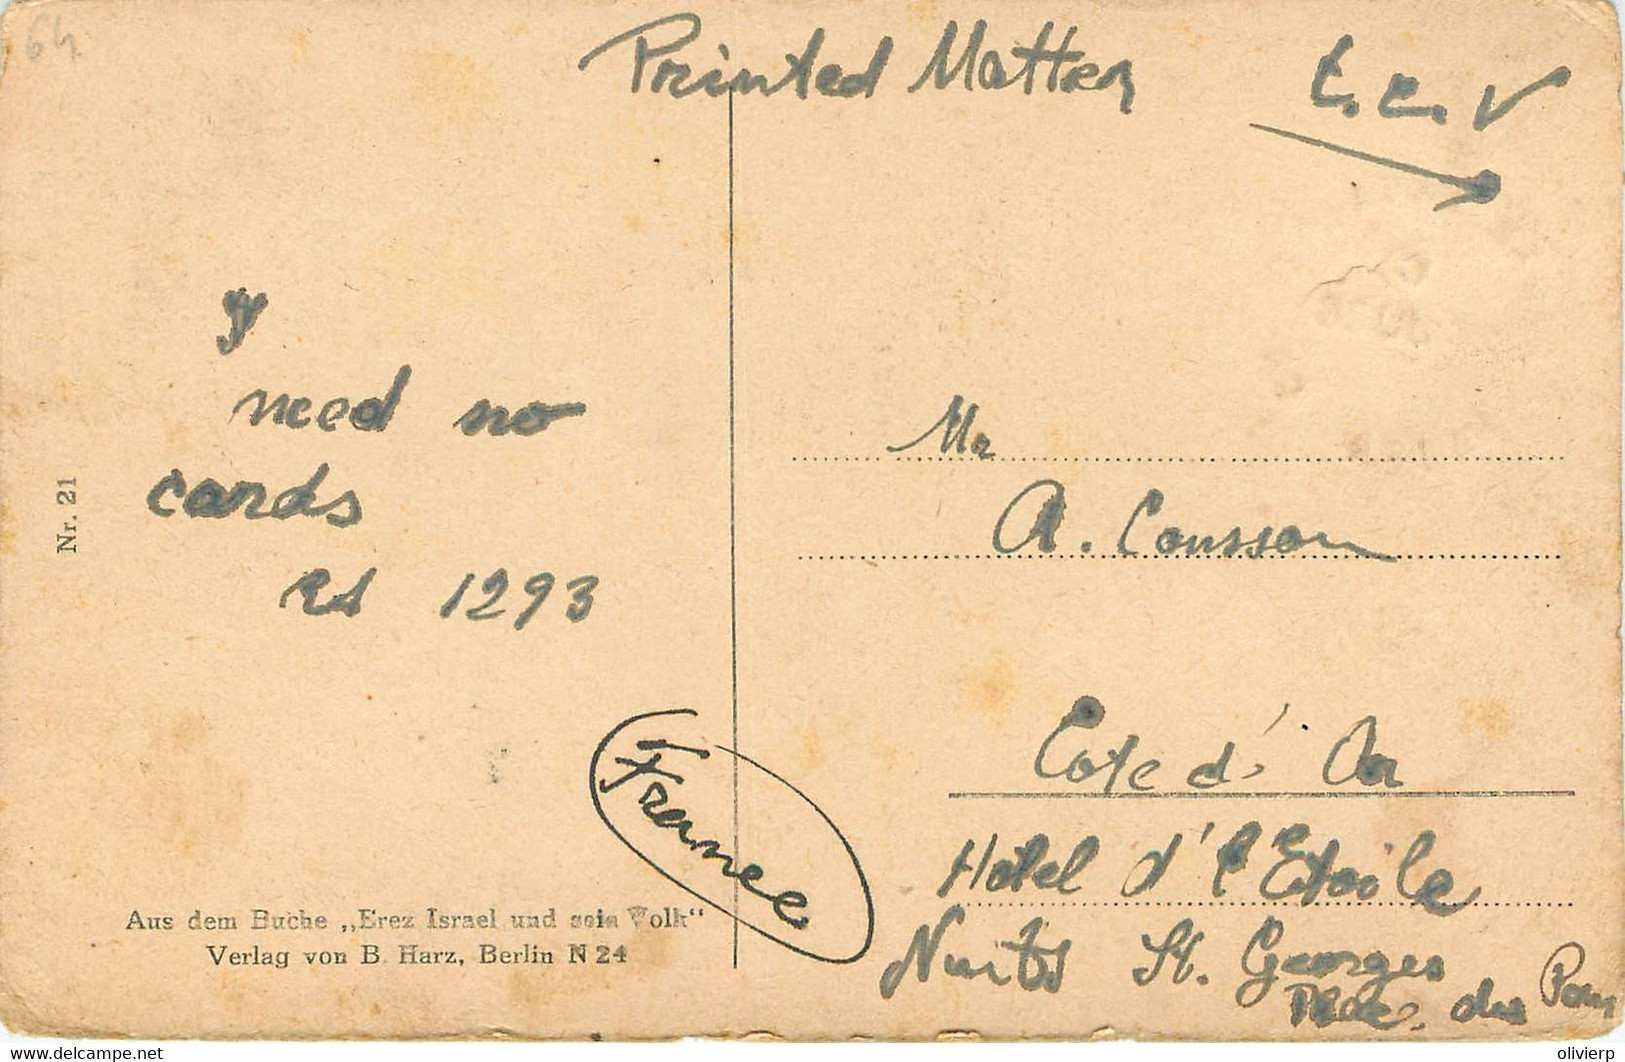 64
Printed Matter
t.c.v
I
need no
cards
1293
Nr. 21
Mr
A. Cousson
Cote d'Or
Hotel d'l'Etoile
Nuits St. Georges
Place. du
France
Aus dem Buche „Erez Israel und sein Volk“
Verlag von B. Harz, Berlin N 24
www.delcampe.net
olivierp